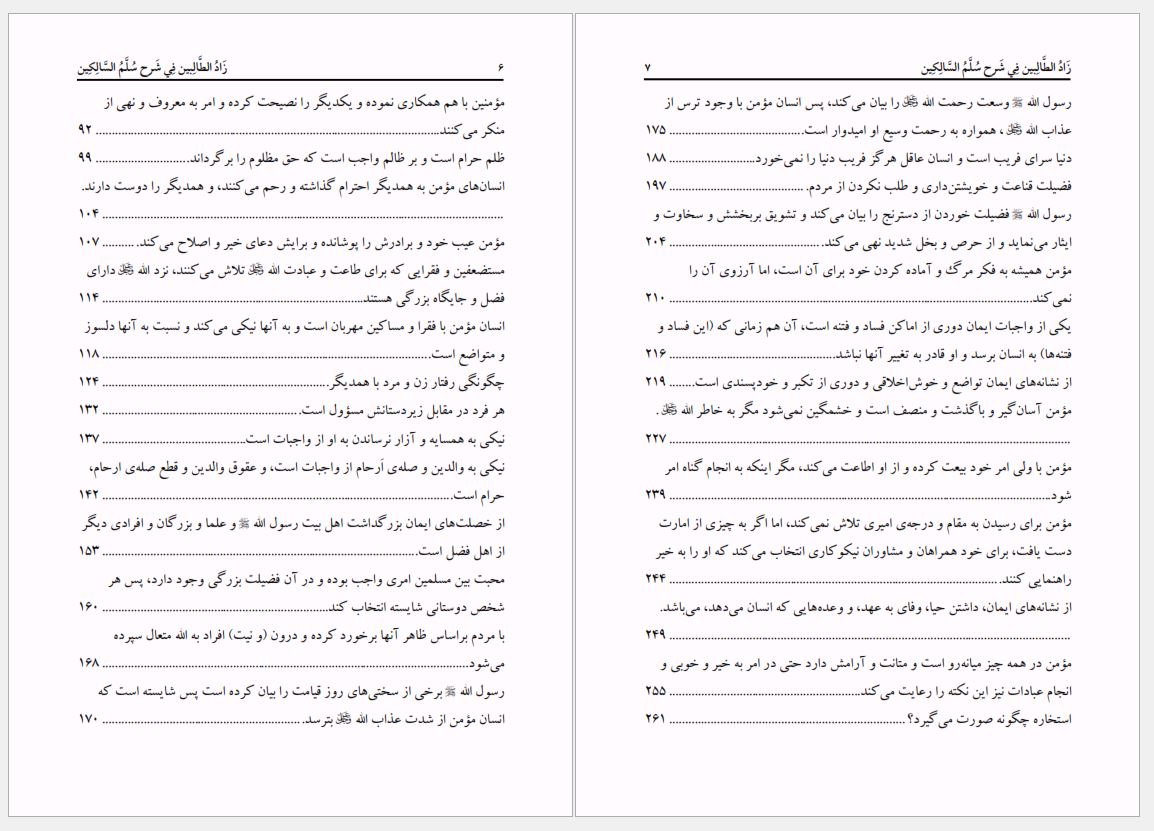 زَادُ الطَّالِبِین فِي شَرحِ سُلَّمُ السَّالِکِین ۶
مؤمنین با هم همکاری نموده و یکدیگر را نصیحت کرده و امر به معروف و نهی از
منکر می‌کنند. ۹۲
ظلم حرام است و بر ظالم واجب است که حق مظلوم را برگرداند ۹۹
انسان‌های مؤمن به همدیگر احترام گذاشته و رحم می‌کنند، و همدیگر را دوست دارند.
۱۰۴
مؤمن عیب خود و برادرش را پوشانده و برایش دعای خیر و اصلاح می‌کند. ۱۰۷
مستضعفین و فقرایی که برای طاعت و عبادت الله ﷻ تلاش می‌کنند، نزد الله ﷻ دارای
فضل و جایگاه بزرگی هستند ۱۱۴
انسان مؤمن با فقرا و مساکین مهربان است و به آنها نیکی می‌کند و نسبت به آنها دلسوز
و متواضع است. ۱۱۸
چگونگی رفتار زن و مرد با همدیگر ۱۲۴
هر فرد در مقابل زیردستانش مسؤول است ۱۳۲
نیکی به همسایه و آزار نرساندن به او از واجبات است ۱۳۷
نیکی به والدین و صله‌ی اَرحام از واجبات است، و عقوق والدین و قطع صله‌ی ارحام،
حرام است. ۱۴۲
از خصلت‌های ایمان بزرگداشت اهل بیت رسول الله ﷺ و علما و بزرگان و افرادی دیگر
از اهل فضل است. ۱۵۳
محبت بین مسلمین امری واجب بوده و در آن فضیلت بزرگی وجود دارد، پس هر
شخص دوستانی شایسته انتخاب کند ۱۶۰
با مردم براساس ظاهر آنها برخورد کرده و درون (و نیت) افراد به الله متعال سپرده
می‌شود ۱۶۸
رسول الله ﷺ برخی از سختی‌های روز قیامت را بیان کرده است پس شایسته است که
انسان مؤمن از شدت عذاب الله ﷻ بترسد. ۱۷۰
زَادُ الطَّالِبِین فِي شَرحِ سُلَّمُ السَّالِکِین ۷
رسول الله ﷺ وسعت رحمت الله ﷻ را بیان می‌کند، پس انسان مؤمن با وجود ترس از
عذاب الله ﷻ ، همواره به رحمت وسیع او امیدوار است. ۱۷۵
دنیا سرای فریب است و انسان عاقل هرگز فریب دنیا را نمی‌خورد ۱۸۸
فضیلت قناعت و خویشتن‌داری و طلب نکردن از مردم. ۱۹۷
رسول الله ﷺ فضیلت خوردن از دسترنج را بیان می‌کند و تشویق بربخشش و سخاوت و
ایثار می‌نماید و از حرص و بخل شدید نهی می‌کند. ۲۰۴
مؤمن همیشه به فکر مرگ و آماده کردن خود برای آن است، اما آرزوی آن را
نمی‌کند. ۲۱۰
یکی از واجبات ایمان دوری از اماکن فساد و فتنه است، آن هم زمانی که (این فساد و
فتنه‌ها) به انسان برسد و او قادر به تغییر آنها نباشد ۲۱۶
از نشانه‌های ایمان تواضع و خوش‌اخلاقی و دوری از تکبر و خودپسندی است ۲۱۹
مؤمن آسان‌گیر و باگذشت و منصف است و خشمگین نمی‌شود مگر به خاطر الله ﷻ .
۲۲۷
مؤمن با ولی امر خود بیعت کرده و از او اطاعت می‌کند، مگر اینکه به انجام گناه امر
شود ۲۳۹
مؤمن برای رسیدن به مقام و درجه‌ی امیری تلاش نمی‌کند، اما اگر به چیزی از امارت
دست یافت، برای خود همراهان و مشاوران نیکوکاری انتخاب می‌کند که او را به خیر
راهنمایی کنند. ۲۴۴
از نشانه‌های ایمان، داشتن حیا، وفای به عهد، و وعده‌هایی که انسان می‌دهد، می‌باشد.
۲۴۹
مؤمن در همه چیز میانه‌رو است و متانت و آرامش دارد حتی در امر به خیر و خوبی و
انجام عبادات نیز این نکته را رعایت می‌کند ۲۵۵
استخاره چگونه صورت می‌گیرد؟ ۲۶۱